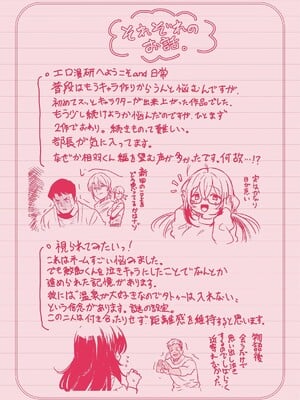 それぞれのお話。
○エロ漫研へようこそand日常
普段はもうキャラ作りからうんと悩むんですが、
初めてスッとキャラクターが出来上がった作品でした。
もう少し続けようか悩んだのですが、ひとまず
2作でおわり。続きものって難しい。
部長が気に入ってます。
なぜか相羽くん編を望む声が多かったです。何故…!?
○視られてみたいっ!
これはネームすごい悩みました。
でも飯島くんを泣きキャラにしたことでなんとか
進められた記憶があります。
彼には"温泉が大好きなのでタトゥーは入れない"
という信念があります。謎の設定。
この二人は付き合たりせず距離感を維持すると思います。
物語後